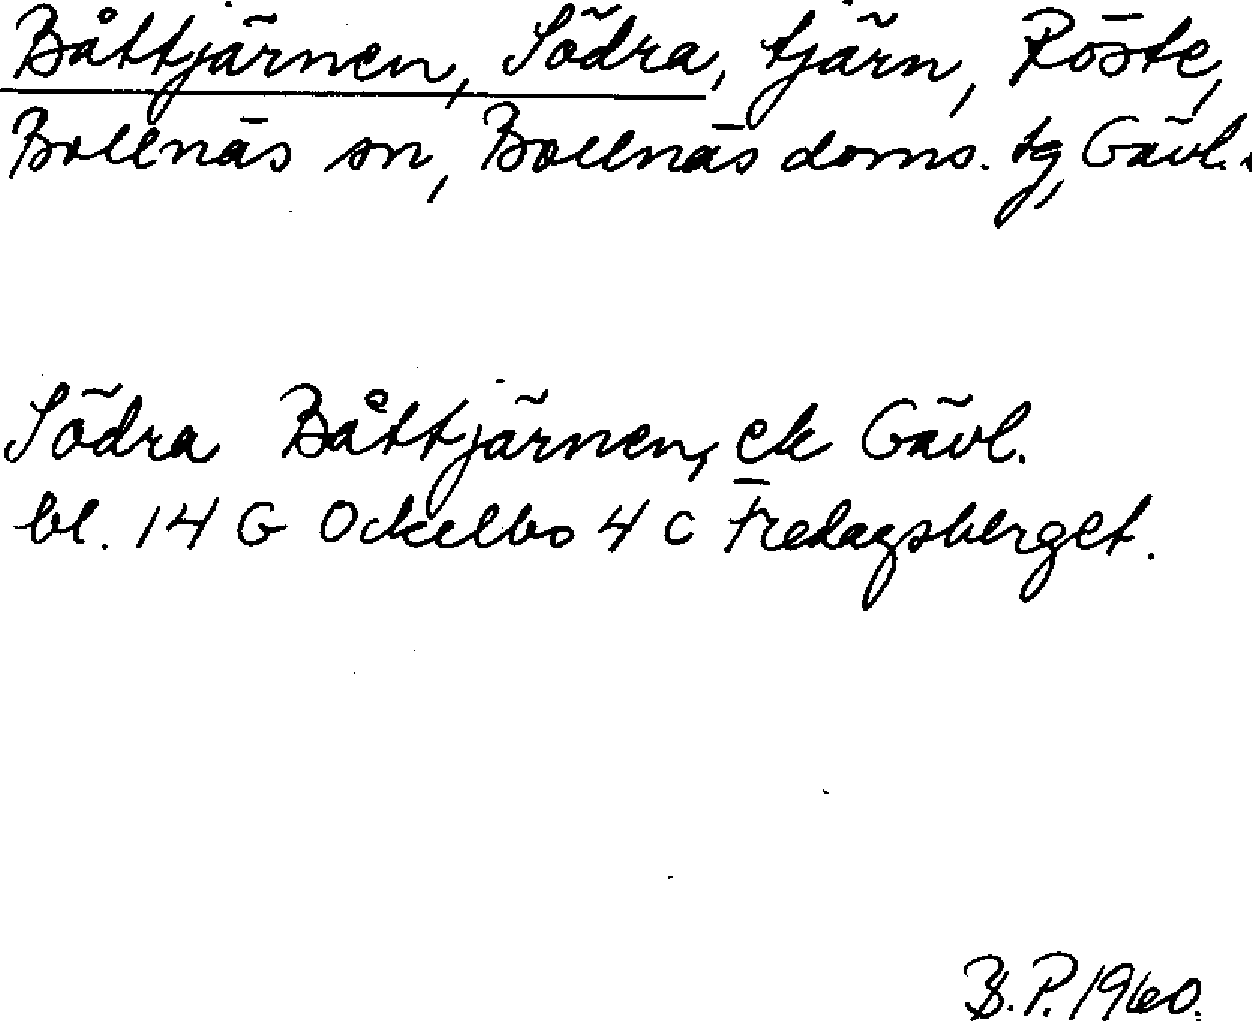 Båttjärnen, Södra, tjärn, Röste,
Bollnäs sn, Bollnäs doms. tg, Gävl.
Södra Båttjärnen, ek Gävl.
bl. 14 G Ockelbo 4 c Fredagsberget.
B.P. 1960.